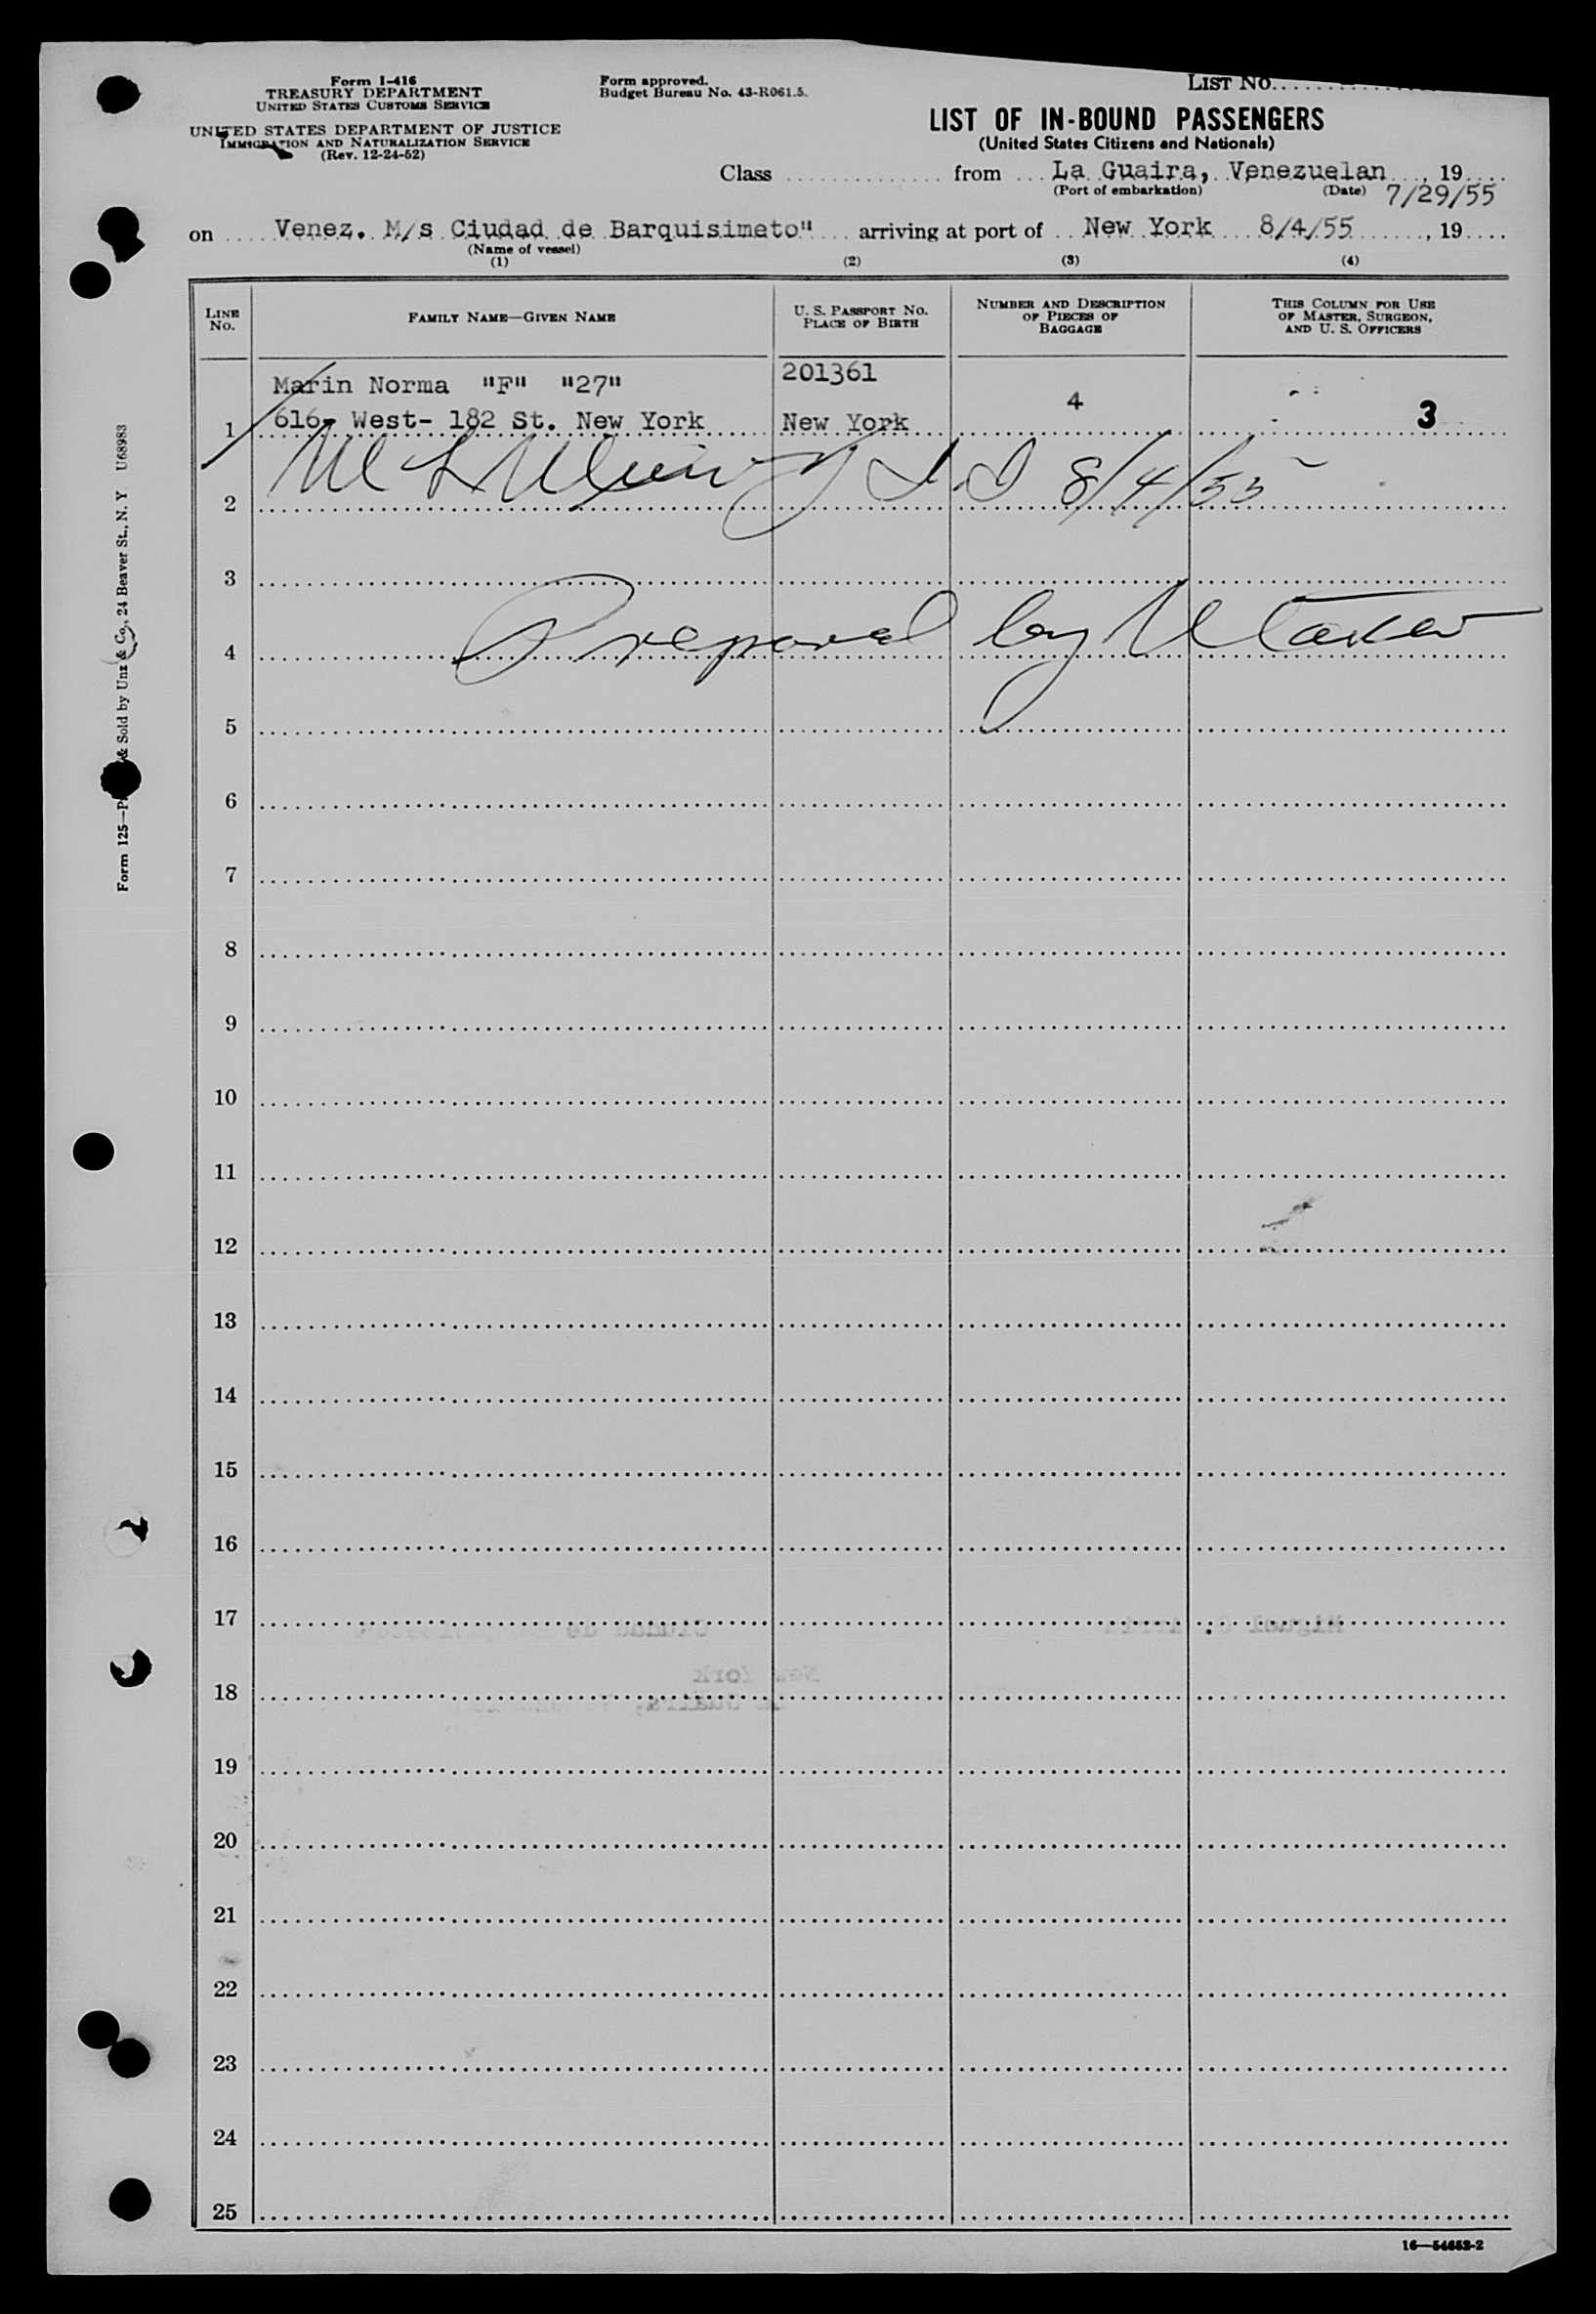 Form I-416
TREASURY DEPARTMENT
UNITED STATES CUSTOMS SERVICE
UNITED STATES DEPARTMENT OF JUSTICE
IMMIGRATION AND NATURALIZATION SERVICE
(Rev. 12-24-52)
Form approved.
Budget Bureau No. 43-R061.5.
LIST NO.
LIST OF IN-BOUND PASSENGERS
(United States Citizens and Nationals)
Class from La Guaira, Venezuelan, 19
(Port of embarkation) (Date) 7/29/55
on Venez. M/s Ciudad de Barquisimeto" arriving at port of New York 8/4/55, 19
(Name of vessel)
(1) (2) (3) (4)
LINE NO.
FAMILY NAME—GIVEN NAME
U. S. PASSPORT NO.
PLACE OF BIRTH
NUMBER AND DESCRIPTION
OF PIECES OF
BAGGAGE
THIS COLUMN FOR USE
OF MASTER, SURGEON,
AND U. S. OFFICERS
Marin Norma "F" "27" 201361
1 616- West- 182 St. New York New York 4 3
2 8/4/55
3
4 Prepared by
5
6
7
8
9
10
11
12
13
14
15
16
17
18
19
20
21
22
23
24
25
16—54652-2
Form 125— & Sold by Unz & Co., 24 Beaver St., N. Y U68983